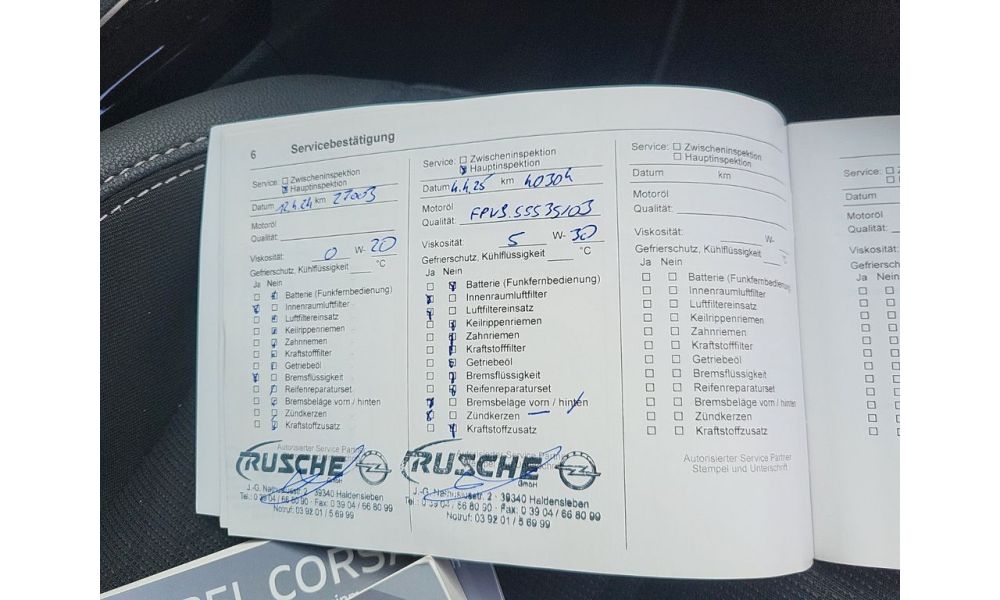 6 Servicebestätigung
Service: Zwischeninspektion
Hauptinspektion
Datum 12.4.24 km 27003
Motoröl
Qualität:
Viskosität: 0 W- 20
Gefrierschutz, Kühlflüssigkeit °C
Ja Nein
Batterie (Funkfernbedienung)
Innenraumluftfilter
Luftfiltereinsatz
Keilrippenriemen
Zahnriemen
Kraftstofffilter
Getriebeöl
Bremsflüssigkeit
Reifenreparaturset
Bremsbeläge vorn / hinten
Zündkerzen
Kraftstoffzusatz
Autorisierter Service Partner
RUSCHE
GmbH
J.-G. Nathusiusstr. 2 · 39340 Haldensleben
Tel.: 0 39 04 / 66 80 90 · Fax: 0 39 04 / 66 80 99
Notruf: 03 92 01 / 5 69 99
Service: Zwischeninspektion
Hauptinspektion
Datum 4.4.25 km 40304
Motoröl
Qualität: FPV9.55535/03
Viskosität: 5 W- 30
Gefrierschutz, Kühlflüssigkeit °C
Ja Nein
Batterie (Funkfernbedienung)
Innenraumluftfilter
Luftfiltereinsatz
Keilrippenriemen
Zahnriemen
Kraftstofffilter
Getriebeöl
Bremsflüssigkeit
Reifenreparaturset
Bremsbeläge vorn / hinten
Zündkerzen
Kraftstoffzusatz
Autorisierter Service Partner
RUSCHE
GmbH
J.-G. Nathusiusstr. 2 · 39340 Haldensleben
Tel.: 0 39 04 / 66 80 90 · Fax: 0 39 04 / 66 80 99
Notruf: 03 92 01 / 5 69 99
Service: Zwischeninspektion
Hauptinspektion
Datum km
Motoröl
Qualität:
Viskosität: W-
Gefrierschutz, Kühlflüssigkeit °C
Ja Nein
Batterie (Funkfernbedienung)
Innenraumluftfilter
Luftfiltereinsatz
Keilrippenriemen
Zahnriemen
Kraftstofffilter
Getriebeöl
Bremsflüssigkeit
Reifenreparaturset
Bremsbeläge vorn / hinten
Zündkerzen
Kraftstoffzusatz
Autorisierter Service Partner
Stempel und Unterschrift
Service:
Datum
Motoröl
Qualität:
Viskosität:
Gefriersch
Ja Nein
PEL CORSA